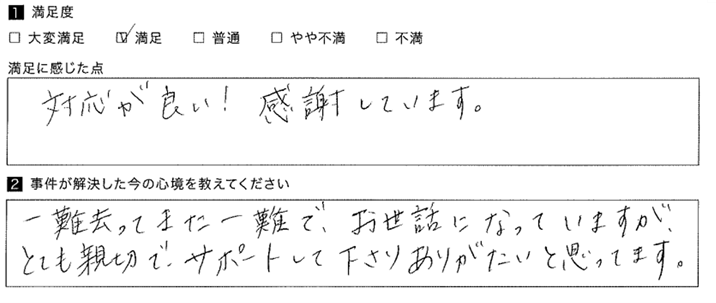 1 満足度
□ 大変満足 ☑ 満足 □ 普通 □ やや不満 □ 不満
満足に感じた点
対応が良い! 感謝しています。
2 事件が解決した今の心境を教えてください
一難去ってまた一難で、お世話になっていますが、
とても親切で、サポートして下さりありがたいと思ってます。